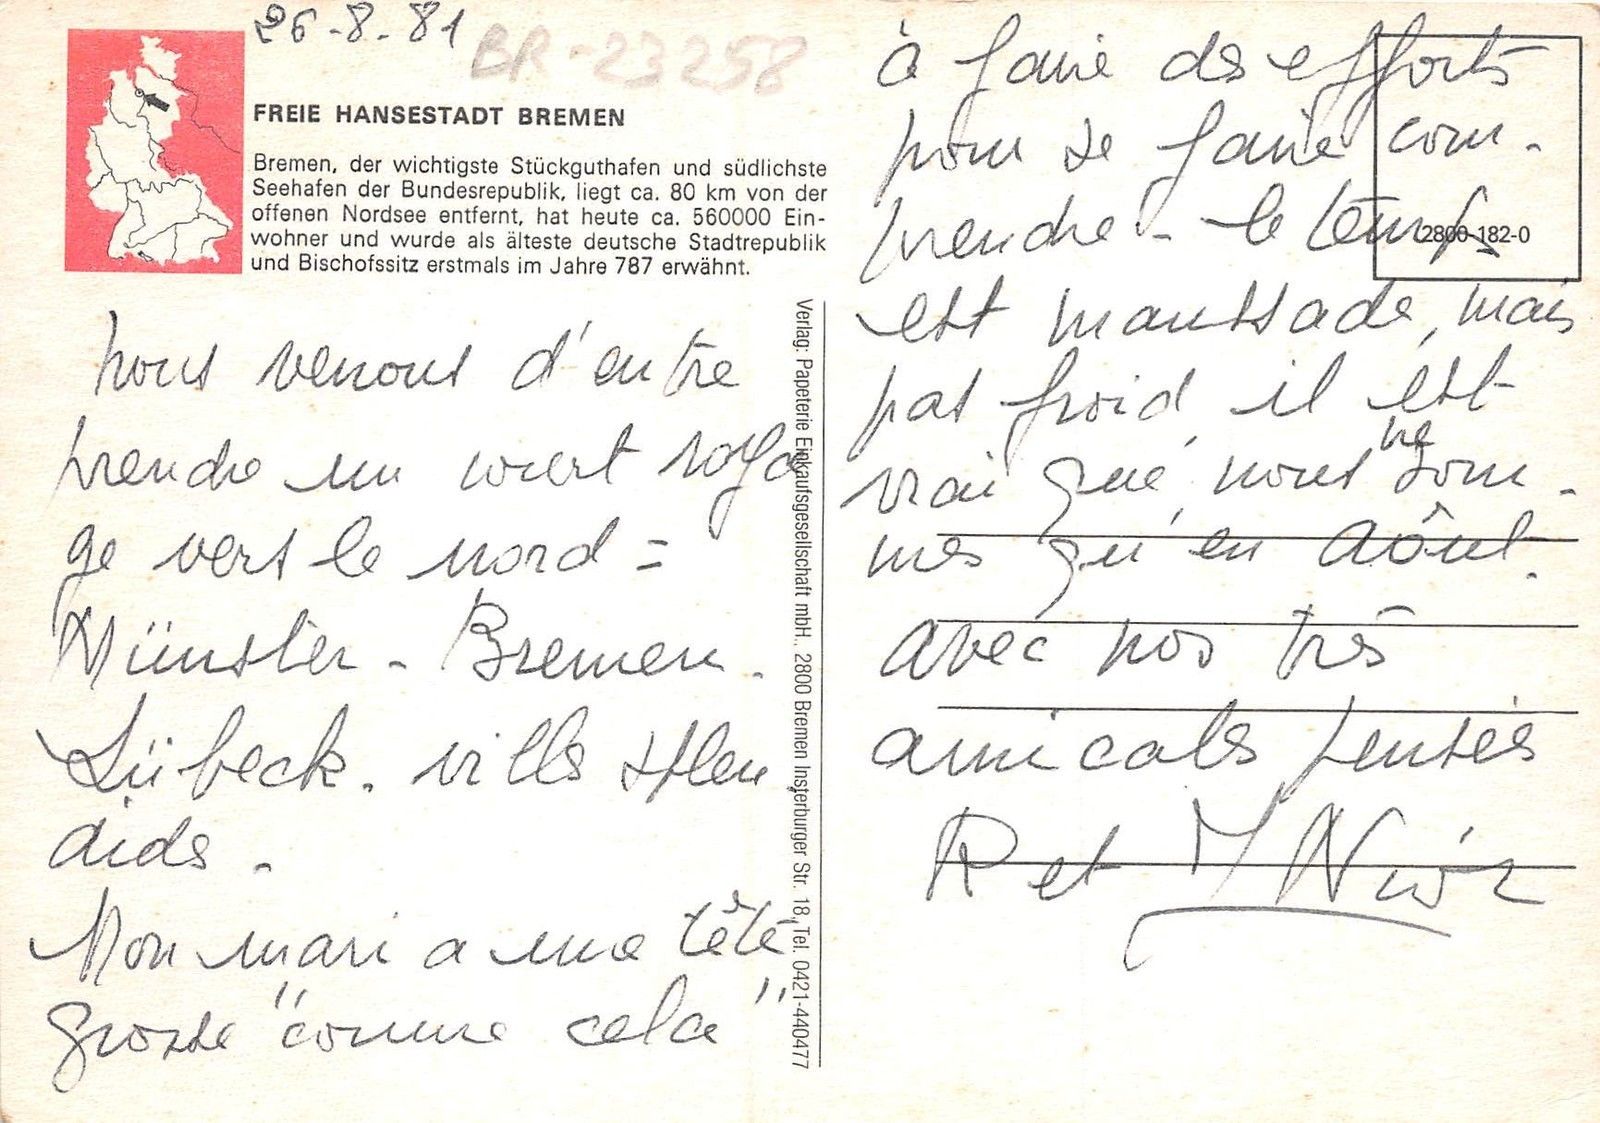 26-8-81
BR-23258
FREIE HANSESTADT BREMEN
Bremen, der wichtigste Stückguthafen und südlichste
Seehafen der Bundesrepublik, liegt ca. 80 km von der
offenen Nordsee entfernt, hat heute ca. 560000 Ein-
wohner und wurde als älteste deutsche Stadtrepublik
und Bischofssitz erstmals im Jahre 787 erwähnt.
nous venons d'entre
prendre un court voya
ge vers le nord =
Münster - Bremen.
Lübeck. villes splen
dides.
Mon mari a une tête
grosse "comme cela"
Verlag: Papeterie Einkaufsgesellschaft mbH., 2800 Bremen Insterburger Str. 18, Tel. 0421-440477
à faire des efforts
pour se faire com-
prendre - le temps
2800-182-0
est maussade, mais
pas froid, il est
vrai que nous ne som-
mes qu'en Août.
avec nos très
amicales pensées
R et M